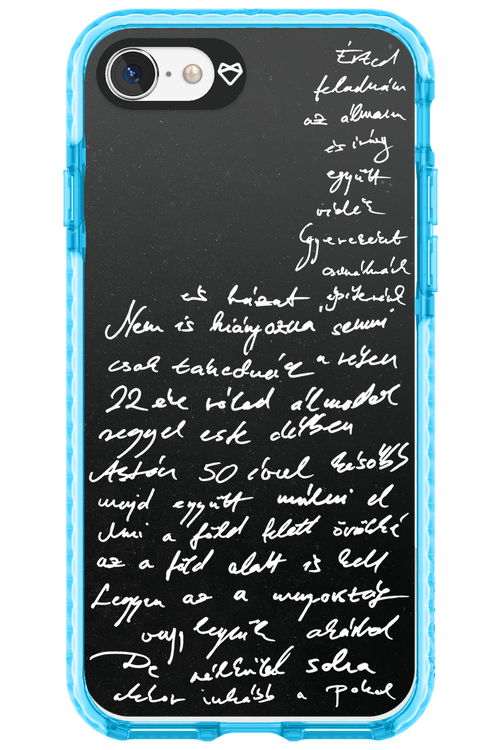 Érted
feladnám
az álmaim
és irány
együtt
vidék
Gyerekeket
csinálnánk
és házat építenénk
Nem is hiányozna semmi
csak takednézz a vélem
22 éve rólad álmodok
reggel este délben
Aztán 50 évvel később
majd együtt múlni el
Ami a föld felett örökké
az a föld alatt is kell
Legyen az a mennyország
vagy legyünk akárhol
De nélküled soha
akkor inkább a Pokol